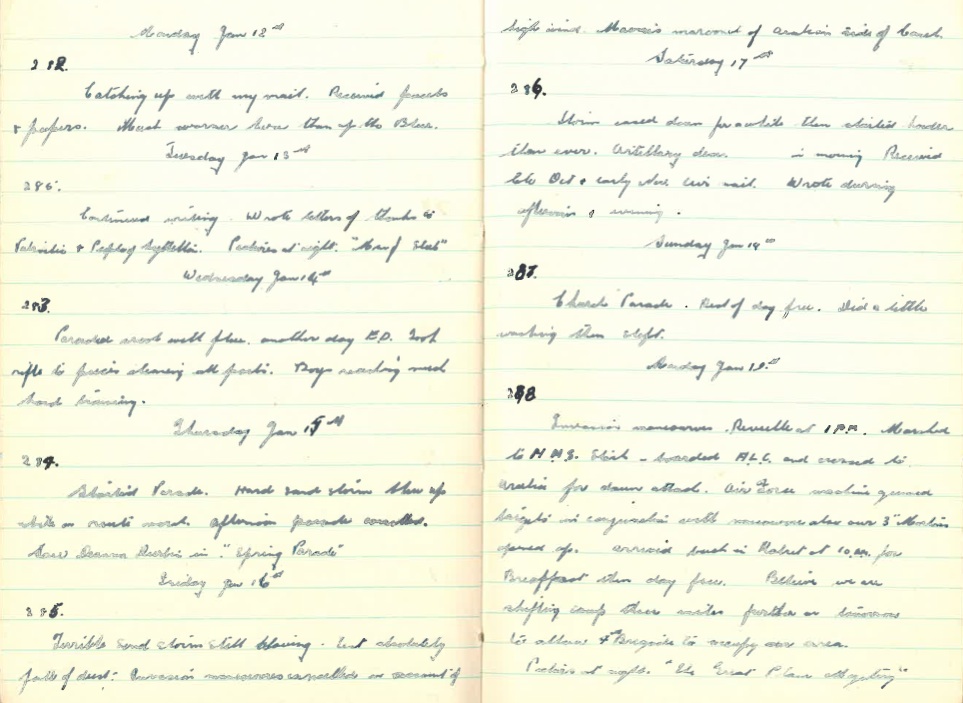 Monday Jan 12th
282.
Catching up with my mail. Received parcels
& papers. Much warmer here than up the Blue.
Tuesday Jan 13th
286.
Continued writing. Wrote letters of thanks to
Patricia & Pictures at night. "Man of Steel"
Wednesday Jan 14th
283.
Paraded another day E.D. Took
rifle to pieces cleaning all parts. Boys needing much
hard training.
Thursday Jan 15th
284.
Started Parade. Hard sand storm blew up
while on route march. Afternoon parade cancelled.
Saw Deanna Durbin in "Spring Parade"
Friday Jan 16th
285.
Terrible sand storm still blowing. Tent absolutely
full of dust. Invasion manoeuvres cancelled on account of
high wind. Maoris marooned of Arabian side of coast.
Saturday 17th
286.
Storm eased down for awhile then started harder
than ever. Artillery dem. in morning Received
late Oct & early Nov. mail. Wrote during
afternoon & evening.
Sunday Jan 18th
287.
Church Parade. Rest of day free. Did a little
washing then slept.
Monday Jan 19th
288
Invasion manoeuvres. Reveille at 1 Marched
to H.M.S. boarded A.L.C. and crossed to
Arabia for dawn attack. Air Force machine gunned
targets in conjunction with manoeuvre also our 3" Mortars
opened up. Arrived back in at 10 a.m. for
Breakfast then day free. Believe we are
shifting camp three miles further on tomorrow
to allow 4th Brigade to occupy our area.
Pictures at night. "The Great Plane Mystery"